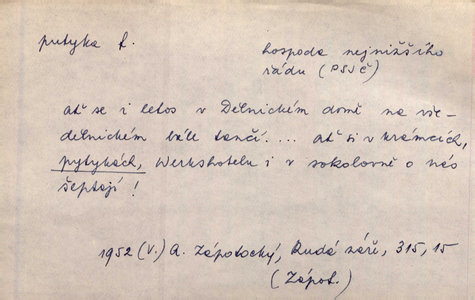 putyka f.
hospoda nejnižšího
řádu (PSJČ)
ať se i letos v Dělnickém domě na vše-
dělnickém bále tančí.... ať si v krámcích,
pytykách, Werkshotelu i v sokolovně o nás
šeptají!
1952 (V.) A. Zápotocký, Rudá záře, 315, 15
(Zápot.)